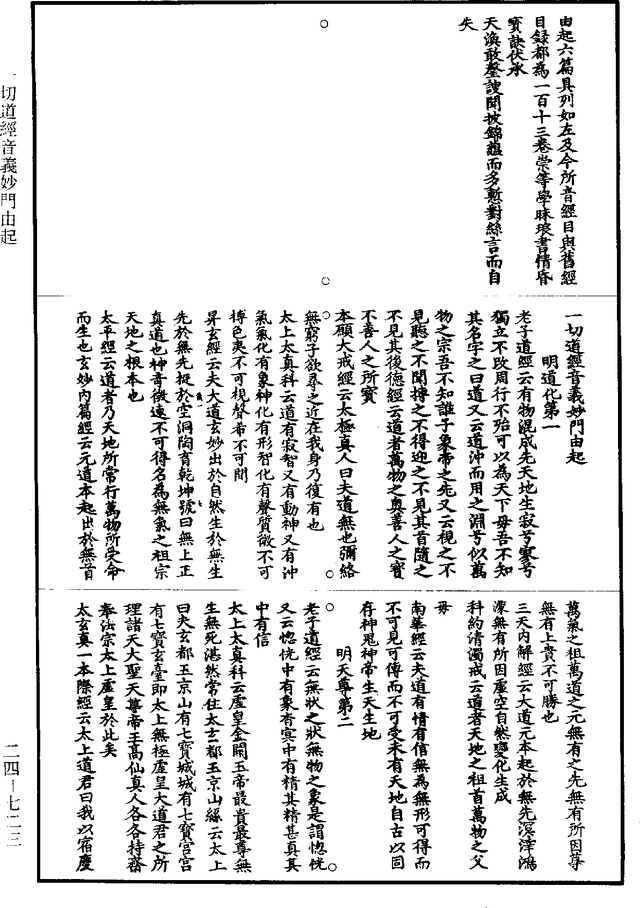 由起六篇具列如左及今所音經目與舊經
目録都為一百十三卷崇等學昧琅書情昏
寳訣伏承
天渙敢罄謏聞披錦蘊而多慙對絲言而自
失
一切道經音義妙門由起
明道化第一
老子道經云有物混成先天地生寂兮寥兮
獨立不改周行不殆可以為天下母吾不知
其名字之曰道又云道沖而用之淵兮似萬
物之宗吾不知誰子象帝之先又云視之不
見聽之不聞摶之不得迎之不見其首隨之
不見其後德經云道者萬物之奥善人之寳
不善人之所寳
本願大戒經云太極真人曰夫道無也彌絡
無窮子欲尋之近在我身乃復有也
太上太真科云道有寂智又有動神又有沖
氣氣化有象神化有形智化有聲質微不可
摶色夷不可視聲希不可聞
昇玄經云夫大道玄妙出於自然生於無生
先於無先挺於空洞陶育乾坤號曰無上正
真道也神竒微逺不可得名為無氣之祖宗
天地之根本也
太平經云道者乃天地所常行萬物所受命
而生也玄妙内篇經云元道本起出於無首
萬氣之祖萬道之元無有之先無有所因尊
無有上貴不可勝也
三天内解經云大道元本起於無先溟涬鴻
濛無有所因虚空自然變化生成
科約清濁戒云道者天地之祖首萬物之父
母
南華經云夫道有情有信無為無形可得而
不可見可傳而不可受未有天地自古以固
存神鬼神帝生天生地
明天尊第二
老子道經云無狀之狀無物之象是謂惚恍
又云惚恍中有象杳冥中有精其精甚真其
中有信
太上太真科云虚皇金闕玉帝最貴最尊無
生無死湛然常住太玄都玉京山緣云太上
曰夫玄都玉京山有七寳城城有七寳宫宫
有七寳玄臺即太上無極虚皇大道君之所
理諸天大聖天尊帝王高仙真人各各持齋
奉法宗太上虚皇於此矣
太玄真一本際經云太上道君曰我以宿慶
一切道經音義妙門由起
二四－七二三